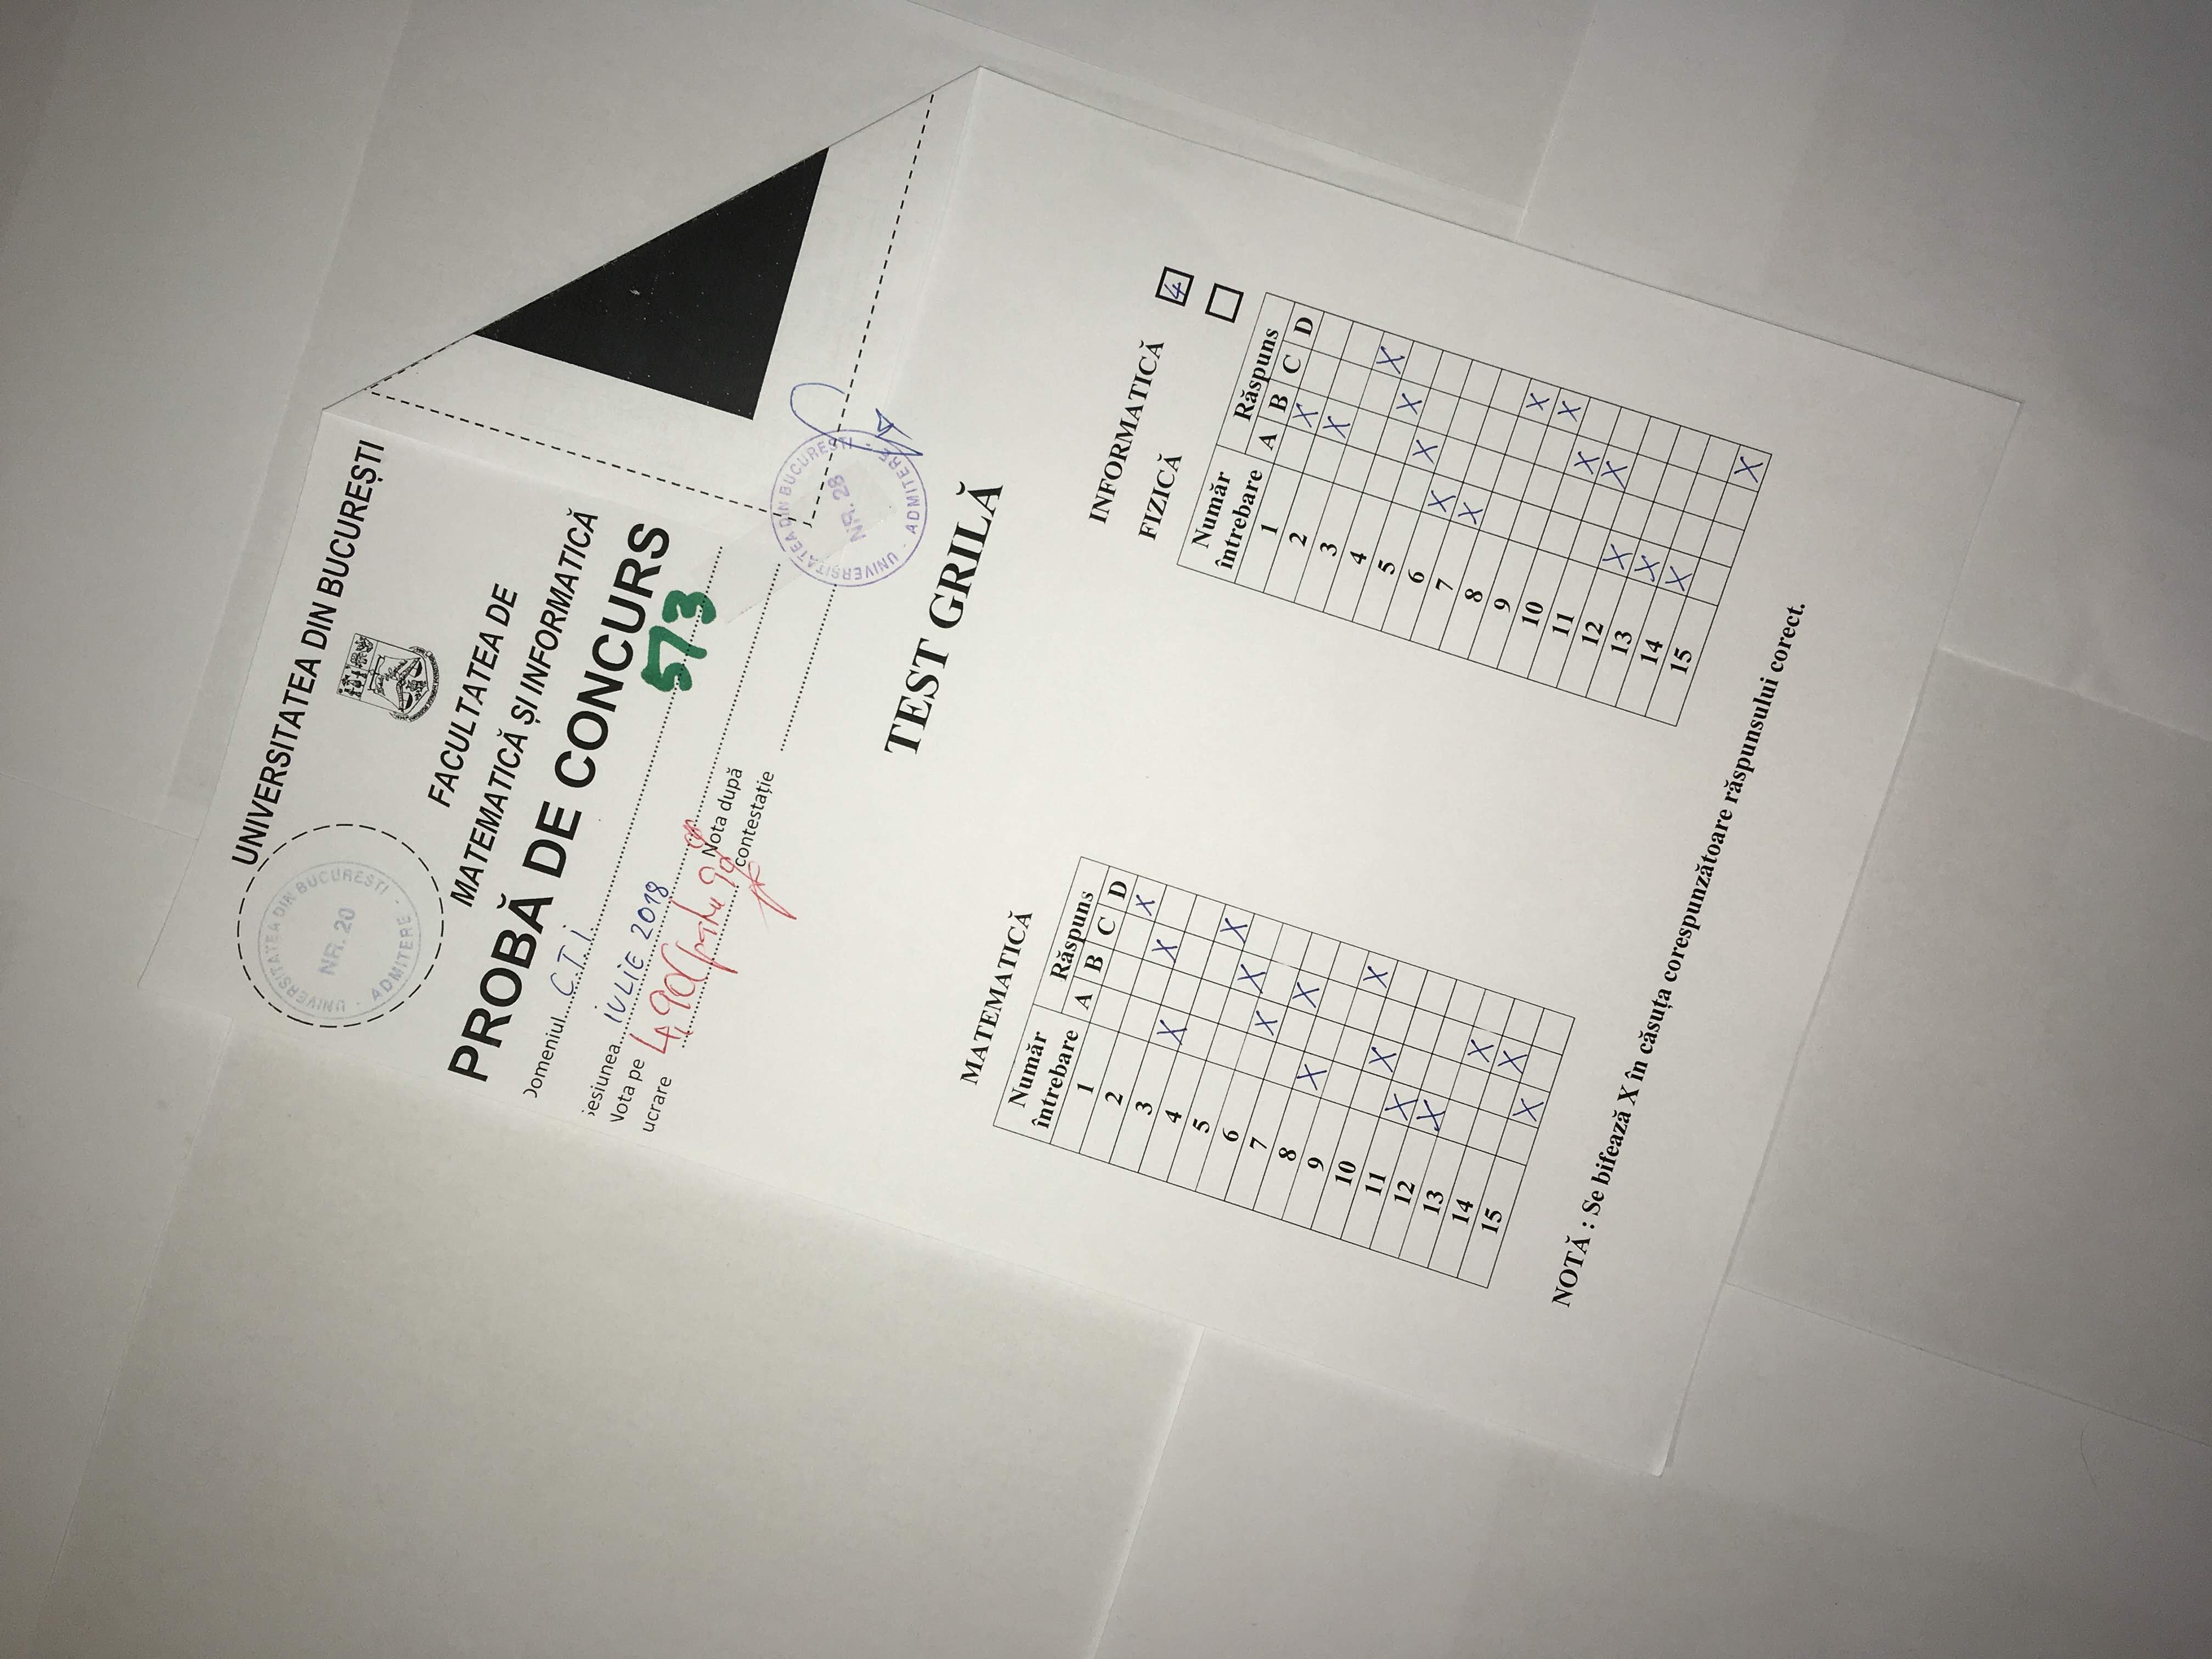 UNIVERSITATEA DIN BUCUREȘTI
UNIVERSITATEA DIN BUCUREȘTI
NR. 20
- ADMITERE -
FACULTATEA DE
MATEMATICĂ ȘI INFORMATICĂ
PROBĂ DE CONCURS
Domeniul C.T.I.
573
Sesiunea IULIE 2018
Nota pe
ucrare 4,90 (patru 90%
Nota după
contestație
UNIVERSITATEA DIN BUCUREȘTI
NR. 28
- ADMITERE -
TEST GRILĂ
MATEMATICĂ
Număr
întrebare Răspuns
A B C D
1 X
2 X
3 X
4 X
5 X
6 X
7 X
8 X
9 X
10 X
11 X
12 X
13 X
14 X
15 X
INFORMATICĂ 4
FIZICĂ
Număr
întrebare Răspuns
A B C D
1 X
2 X
3 X
4 X
5 X
6 X
7 X
8 X
9 X
10 X
11 X
12 X
13 X
14 X
15 X
NOTĂ : Se bifează X în căsuța corespunzătoare răspunsului corect.